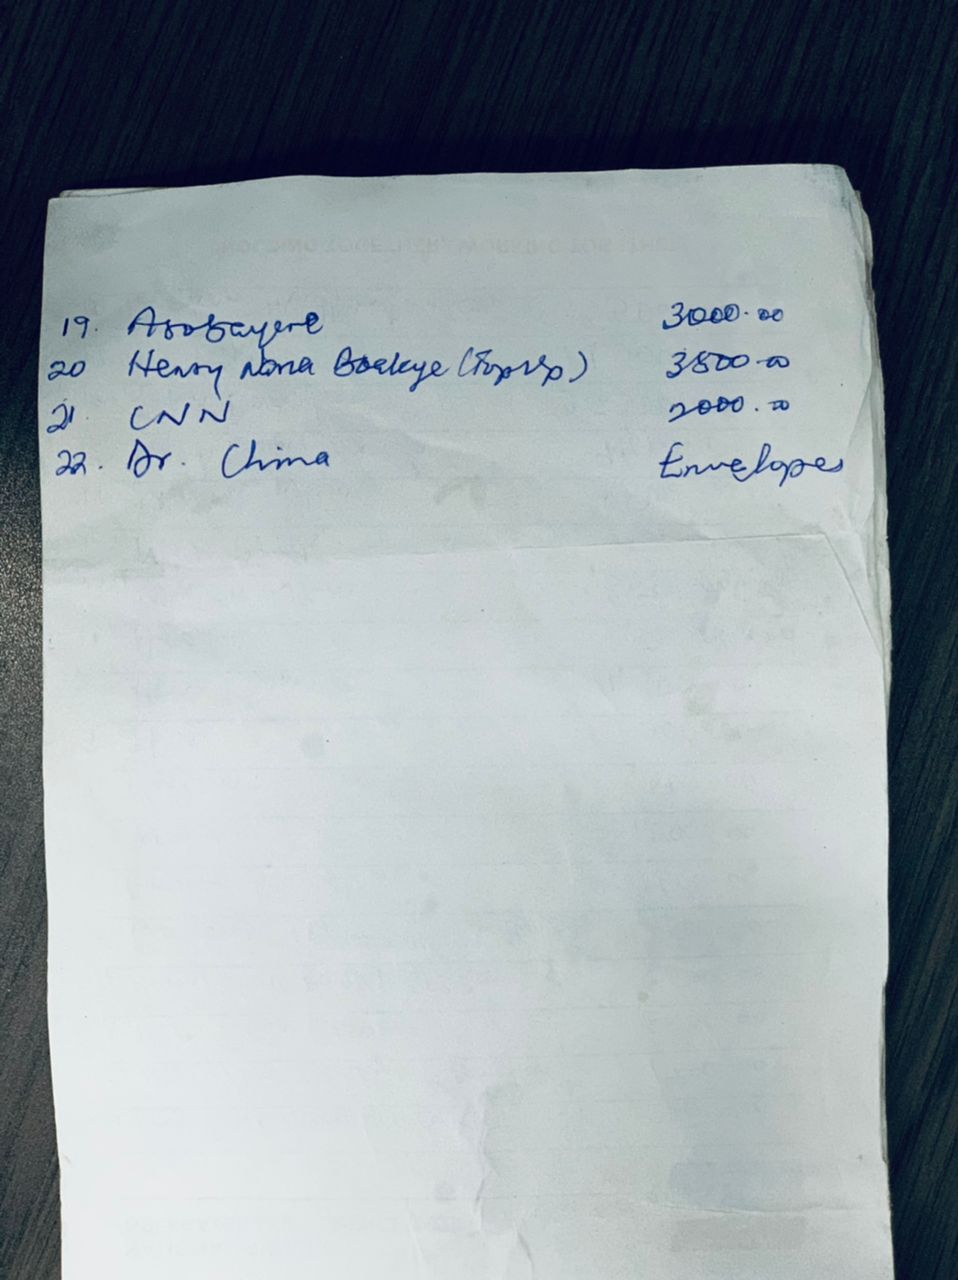 19. Asobayere 3000.00
20 Henry Nana Boakye (TopUp) 3500.00
21. CNN 2000.00
22. Dr. China Envelopes